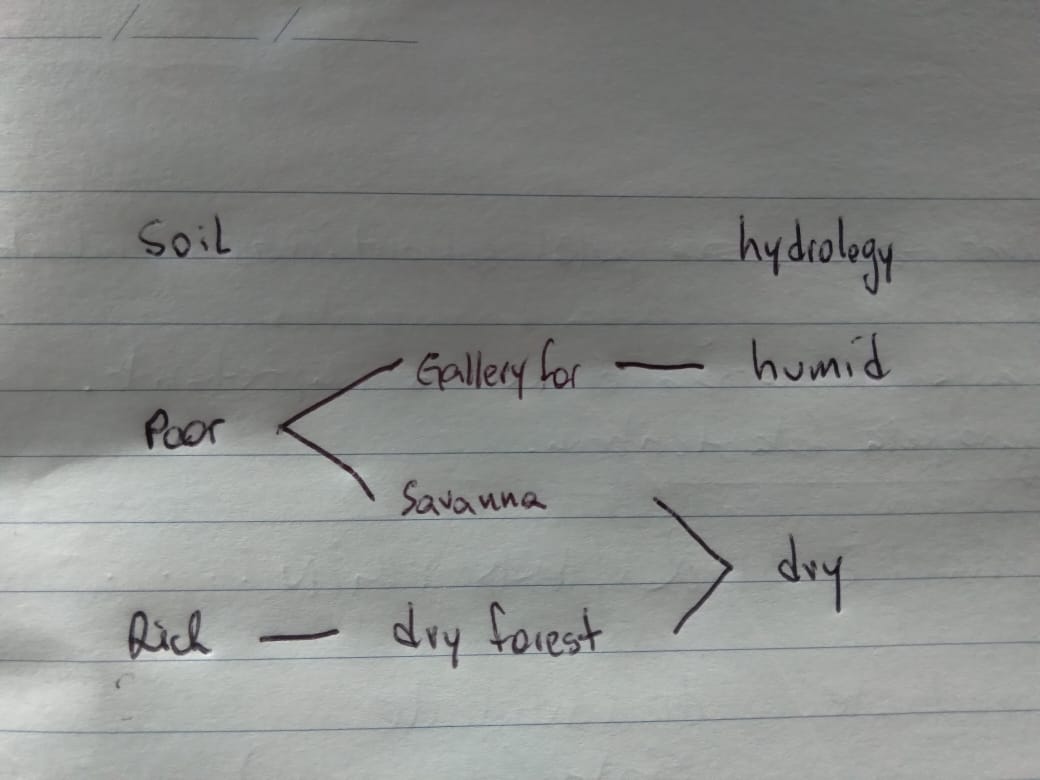 Soil hydrology
Gallery for — humid
Poor
Savanna
dry
Rich — dry forest